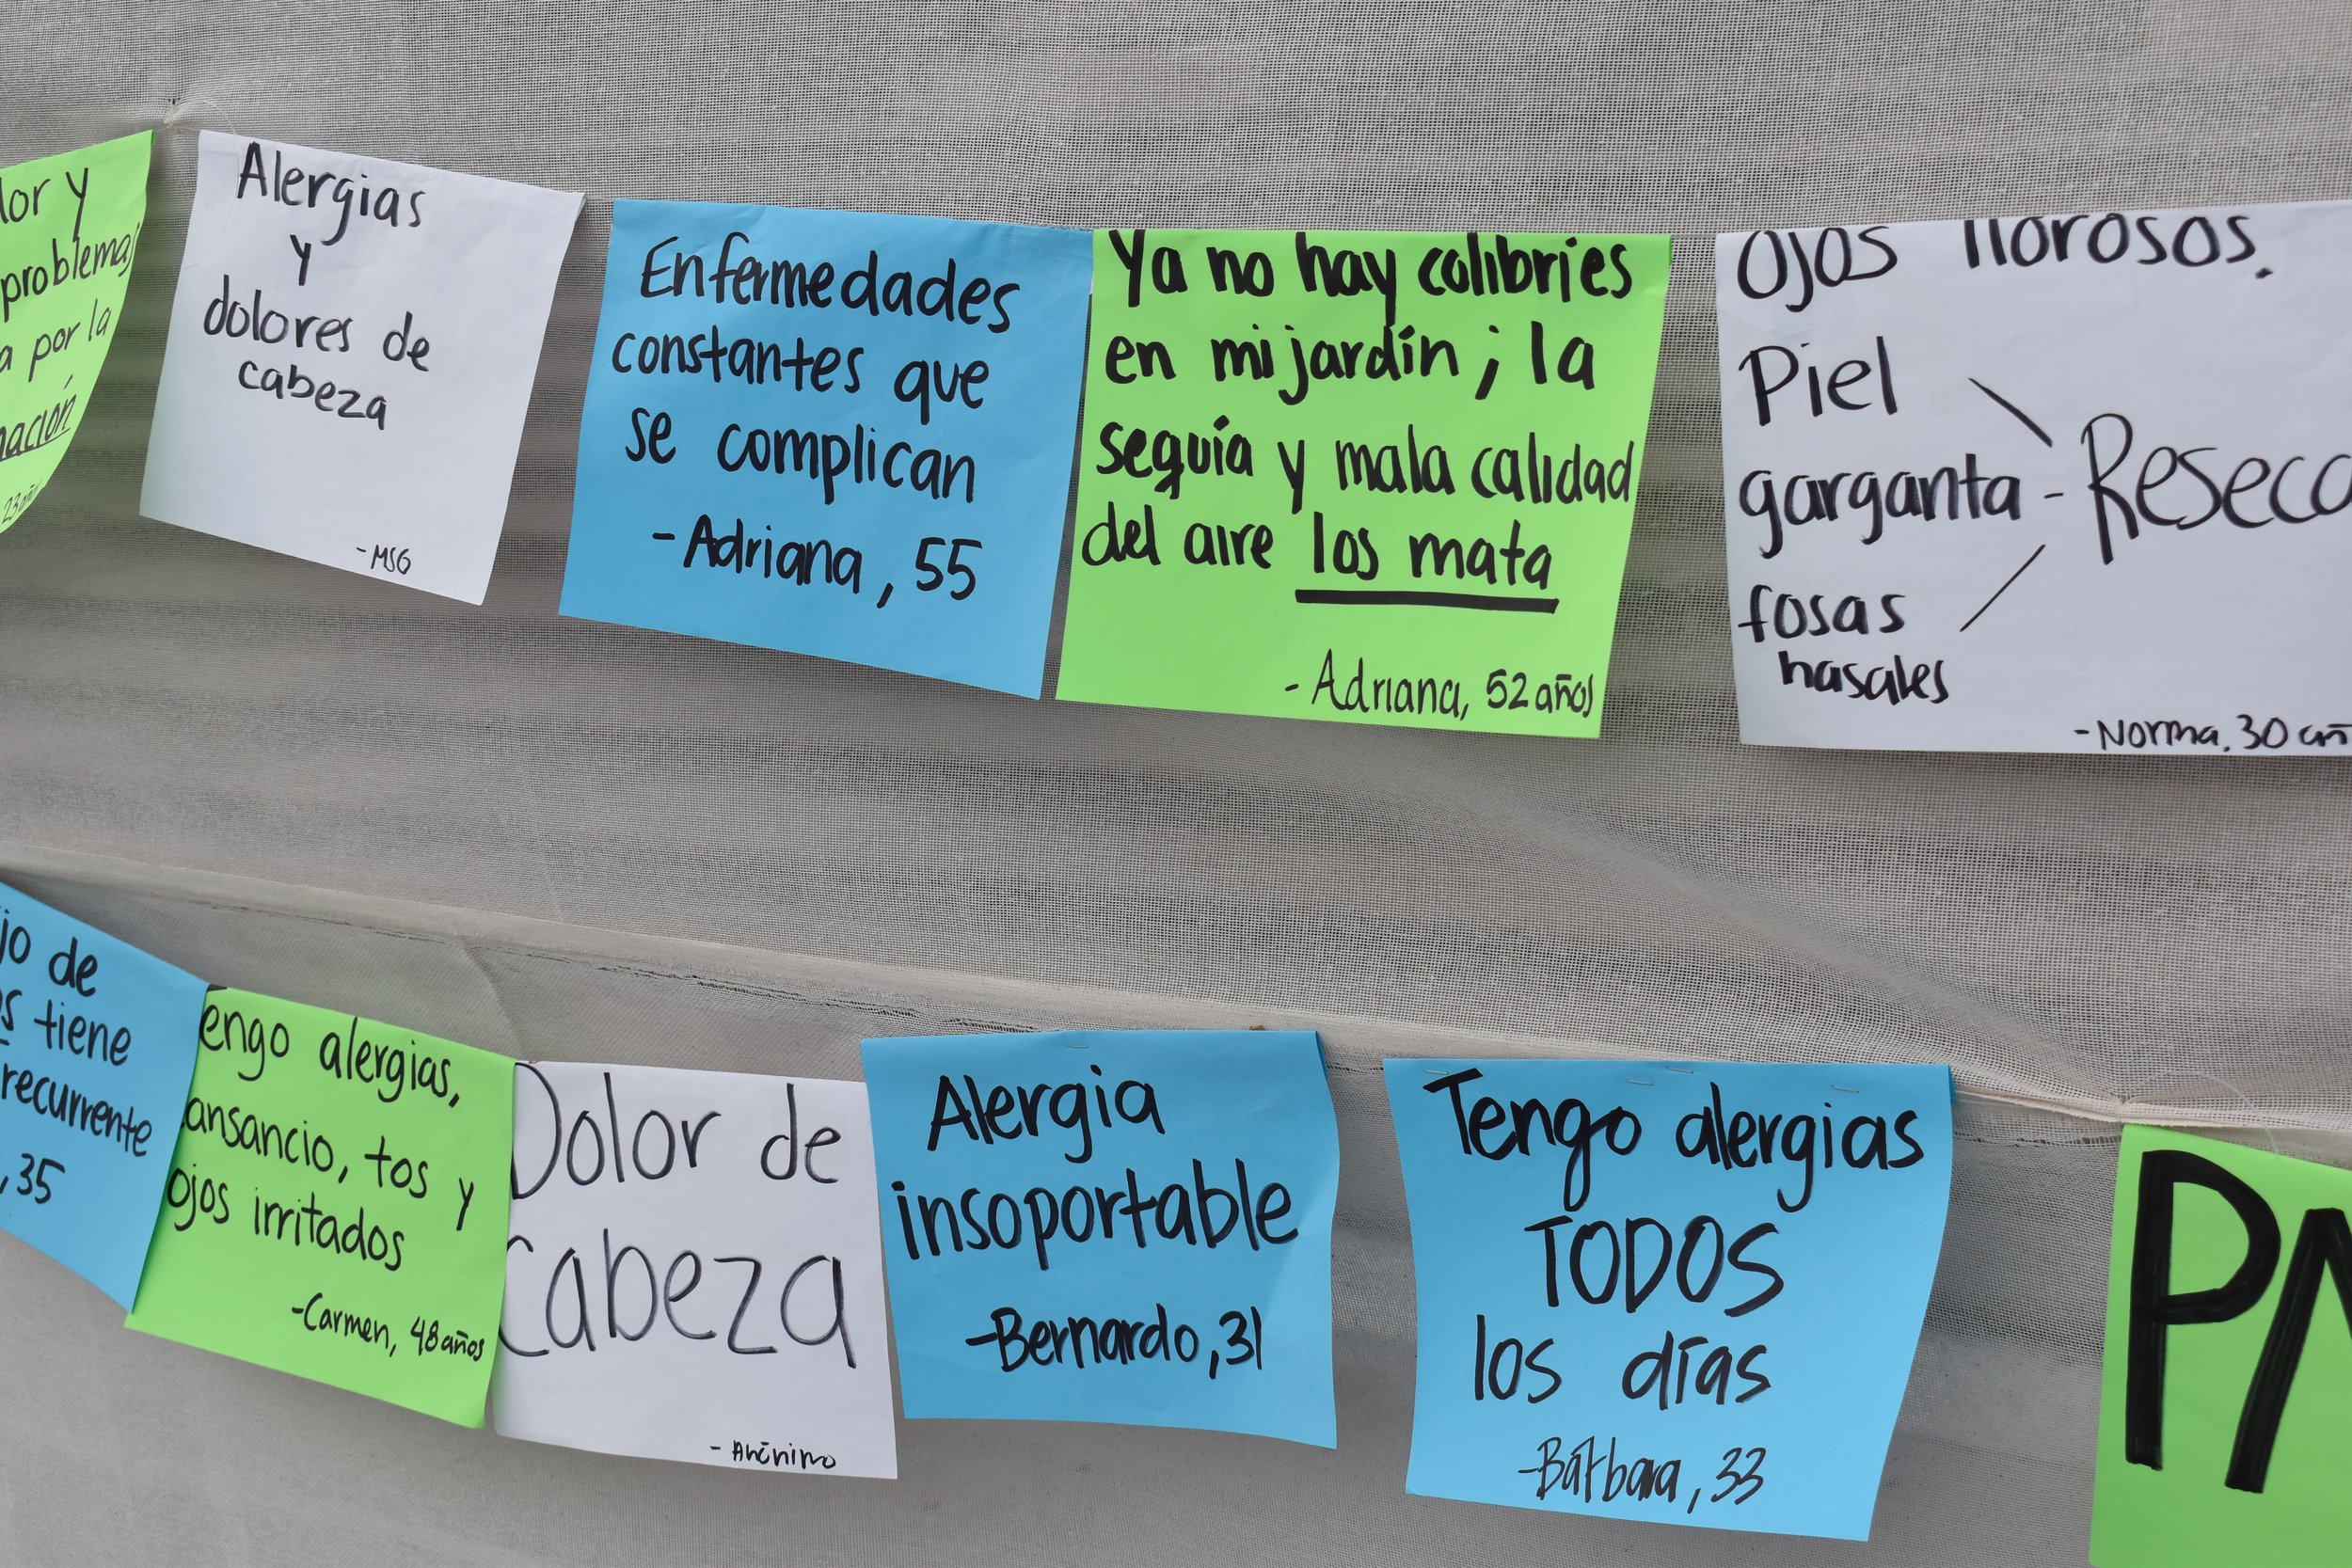 lor y
problemas
a por la
nación
23 años
Alergias
y
dolores de
cabeza
-MSG
Enfermedades
constantes que
se complican
-Adriana, 55
Ya no hay colibríes
en mi jardín; la
seguía y mala calidad
del aire los mata
-Adriana, 52 años
Ojos llorosos.
Piel
garganta - Reseca
fosas
nasales
-Norma, 30 añ
jo de
s tiene
recurrente
, 35
engo alergias,
ansancio, tos y
ojos irritados
-Carmen, 48 años
Dolor de
cabeza
-Anónimo
Alergia
insoportable
-Bernardo, 31
Tengo alergias
TODOS
los días
-Bárbara, 33
PM